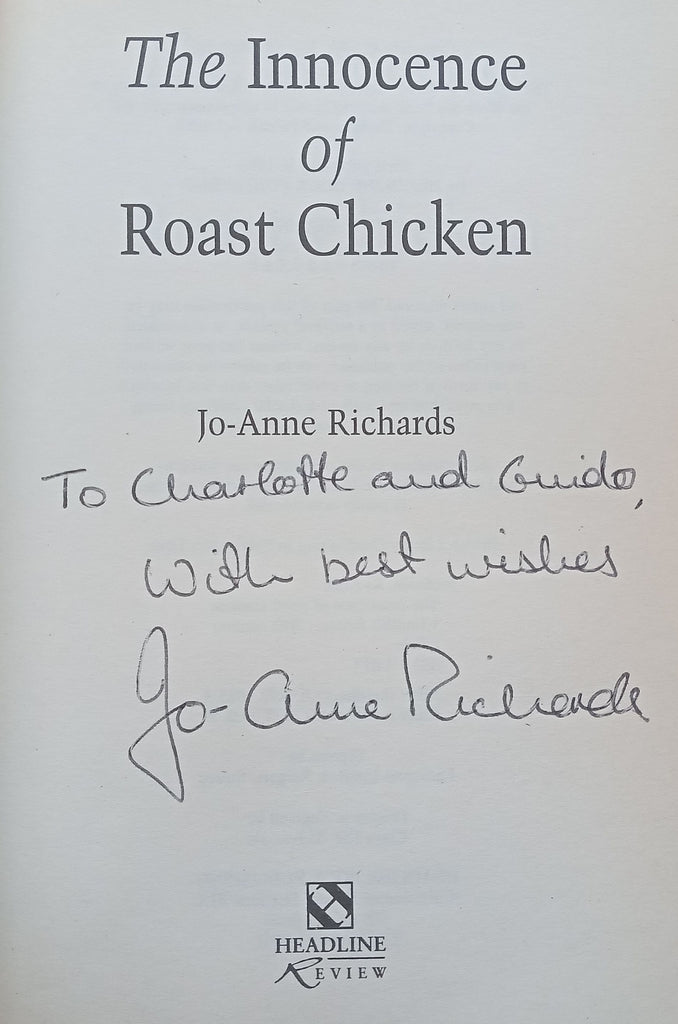 The Innocence
of
Roast Chicken
Jo-Anne Richards
To Charlotte and Guido,
With best wishes
Jo-Anne Richards
HEADLINE
REVIEW